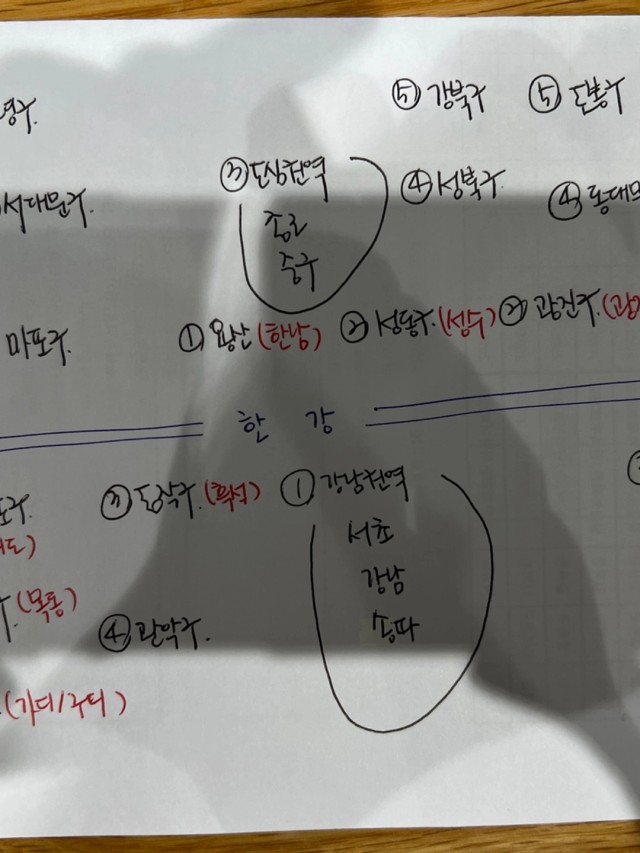 ⑤ 강북구 ⑤ 도봉구
③ 도심권역 ④ 성북구
서대문구.
종로
중구
마포구. ① 용산 (한남) ② 성동구. (성수) ② 광진구.
한 강
동작구. (흑석) ① 강남권역
서초
강남
(목동)
④ 관악구. 송파
(가디/구디)